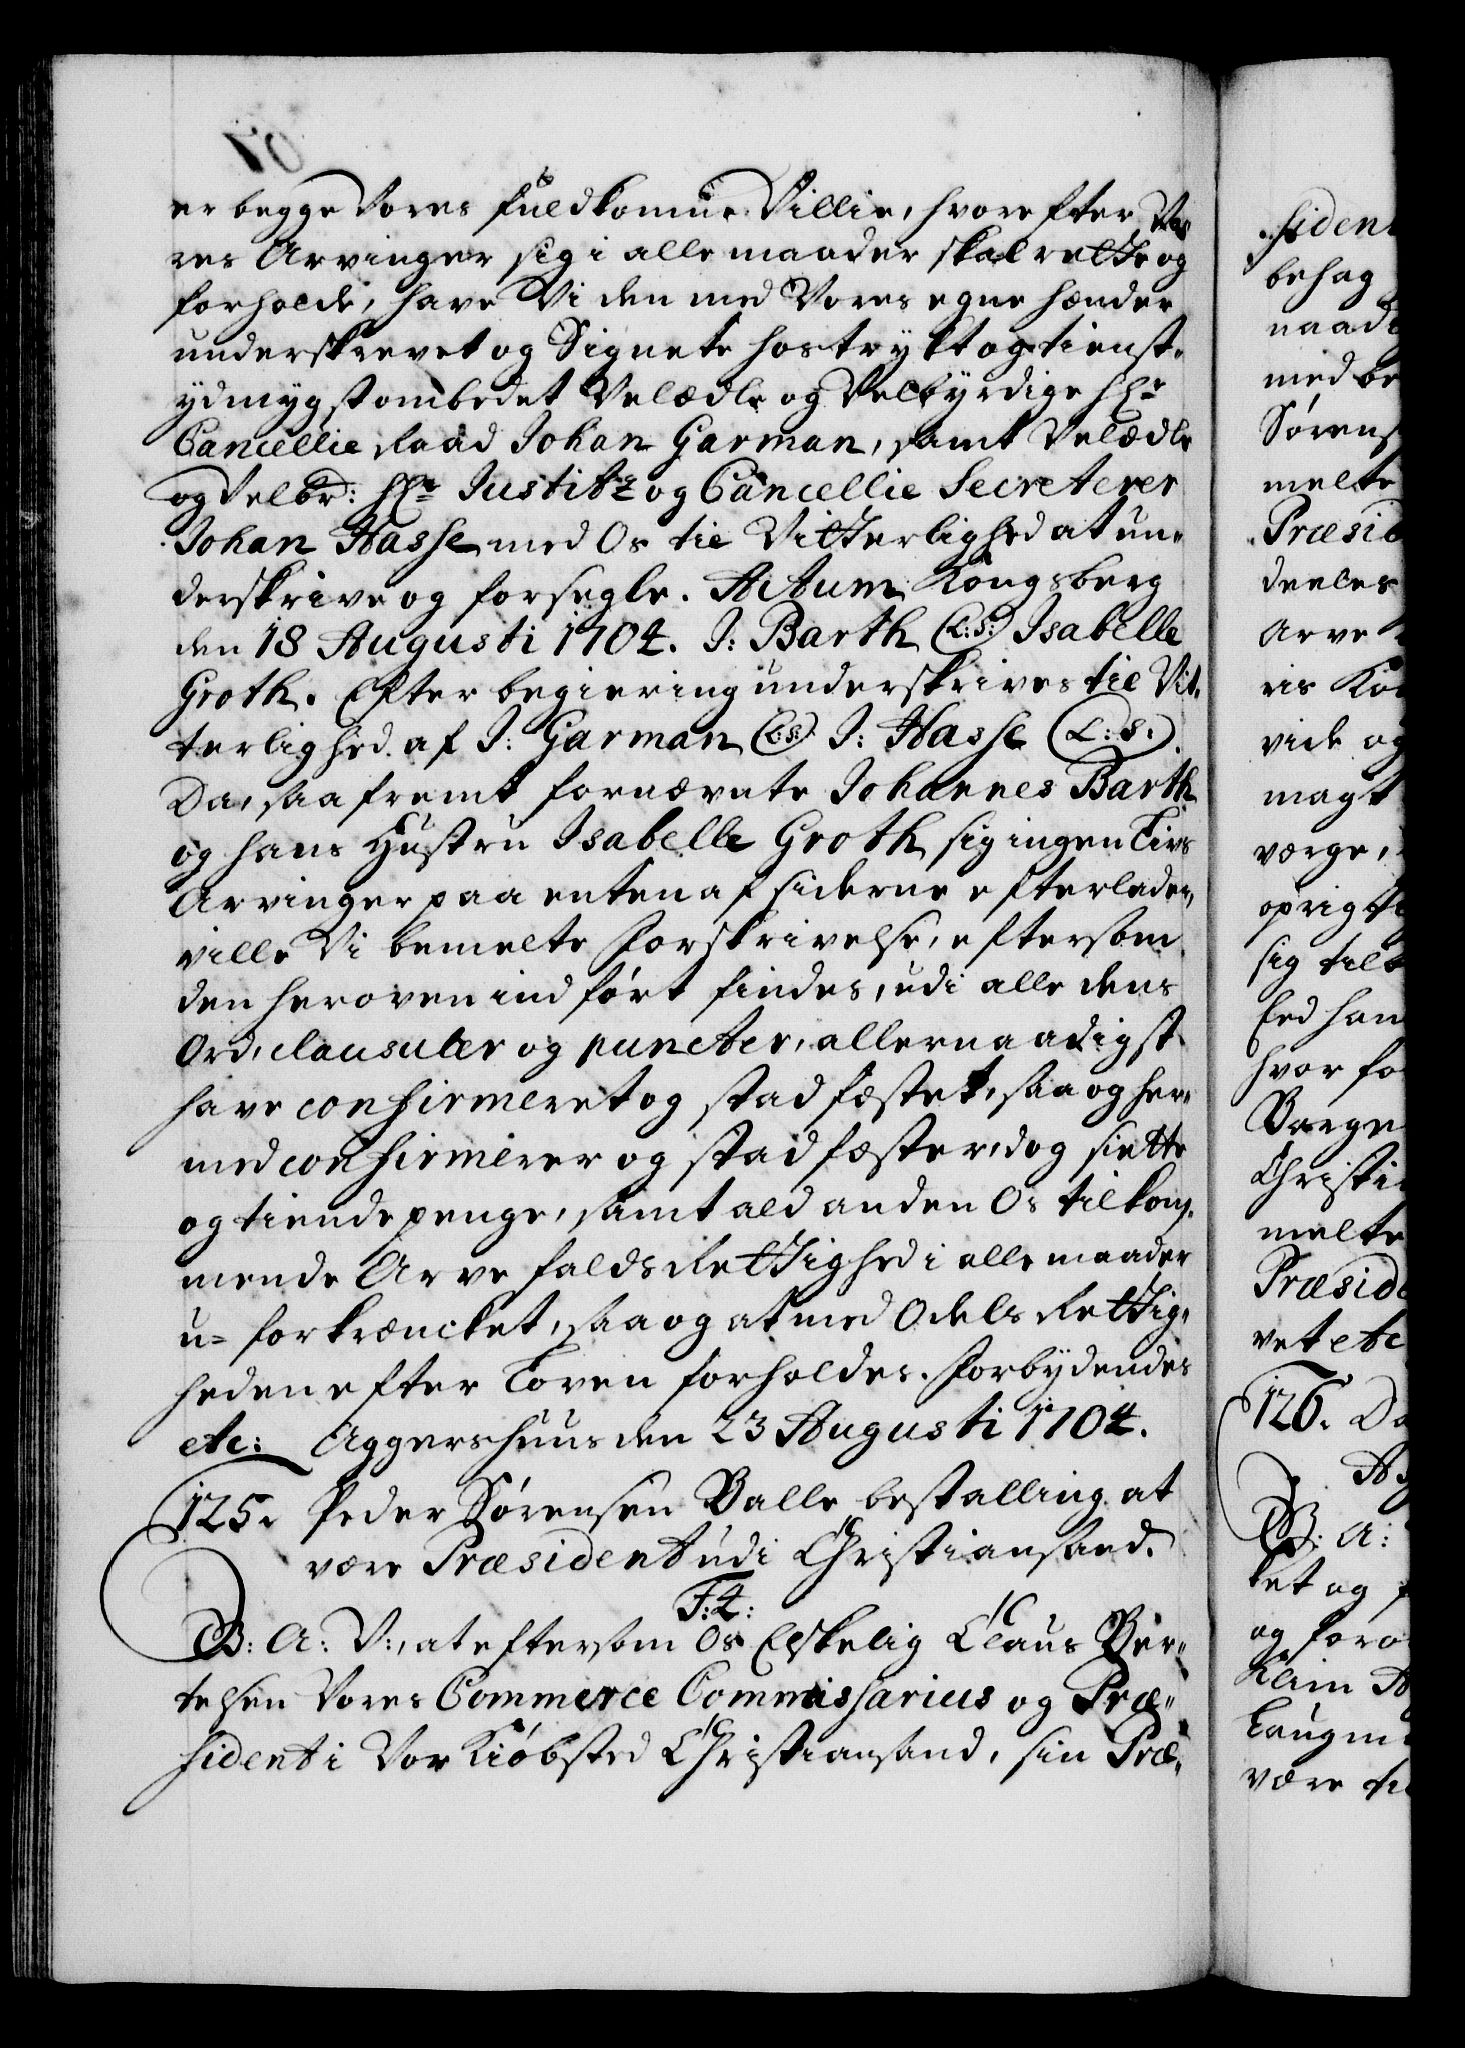 er begge Vores fuldkomne Villie, hvorefter Vo-
res Arvinger sig i alle maader skal rette og
forholde, have Vi den med Vores egne hænder
underskrevet og Signete hostrykt og tienst-
ydmygst ombedet Velædle og Velbyrdige Hr
Cancellie Raad Johan Garman, samt Velædle
og Velbr: Hr Justitz og Cancellie Secreterer
Johan Hasse med Os til Vitterlighed at un-
derskrive og forsegle. Actum Kongsberg
den 18 Augusti 1704. J: Barth (L:S:) Isabelle
Groth. Efter begiering underskrives til Vit-
terlighed af J: Garman (L:S:) J: Hasse (L:S:).
Da, saafremt fornævnte Johannes Barth
og hans Hustru Isabelle Groth sig ingen Livs
Arvinger paa enten af siderne efterlader,
ville Vi bemelte Forskrivelse, eftersom
den heroven indført findes, udi alle dens
Ord, clausuler og puncter, allernaadigst
have confirmeret og stadfæstet, saa og her-
med confirmerer og stadfæster, dog siette
og tiende penge, samt ald anden Os tilkom-
mende Arve falds Rettighed i alle maader
u-forkræncket, saa og at med Odels Rettig-
heden efter Loven forholdes. Forbydendes
etc: Aggershuus den 23 Augusti 1704.
125. Peder Sørensen Balle bestalling at
være Præsident udi Christiansand.
F:4:
G: A: V:, at eftersom Os Elskelig Claus Ber-
telsen Vores Commerce Commissarius og Præ-
sident i Vor Kiøbsted Christiansand, sin Præ-
sident
behag
naad
med be
Sørens
melte
Præsid
deeles
Arve
ris Kon
vide og
magt
værge,
oprigti
sig til
Eed han
hvor fo
Borge
Christi
melte
Præside
vet etc
126. Da
G: A:
og foro
være ti